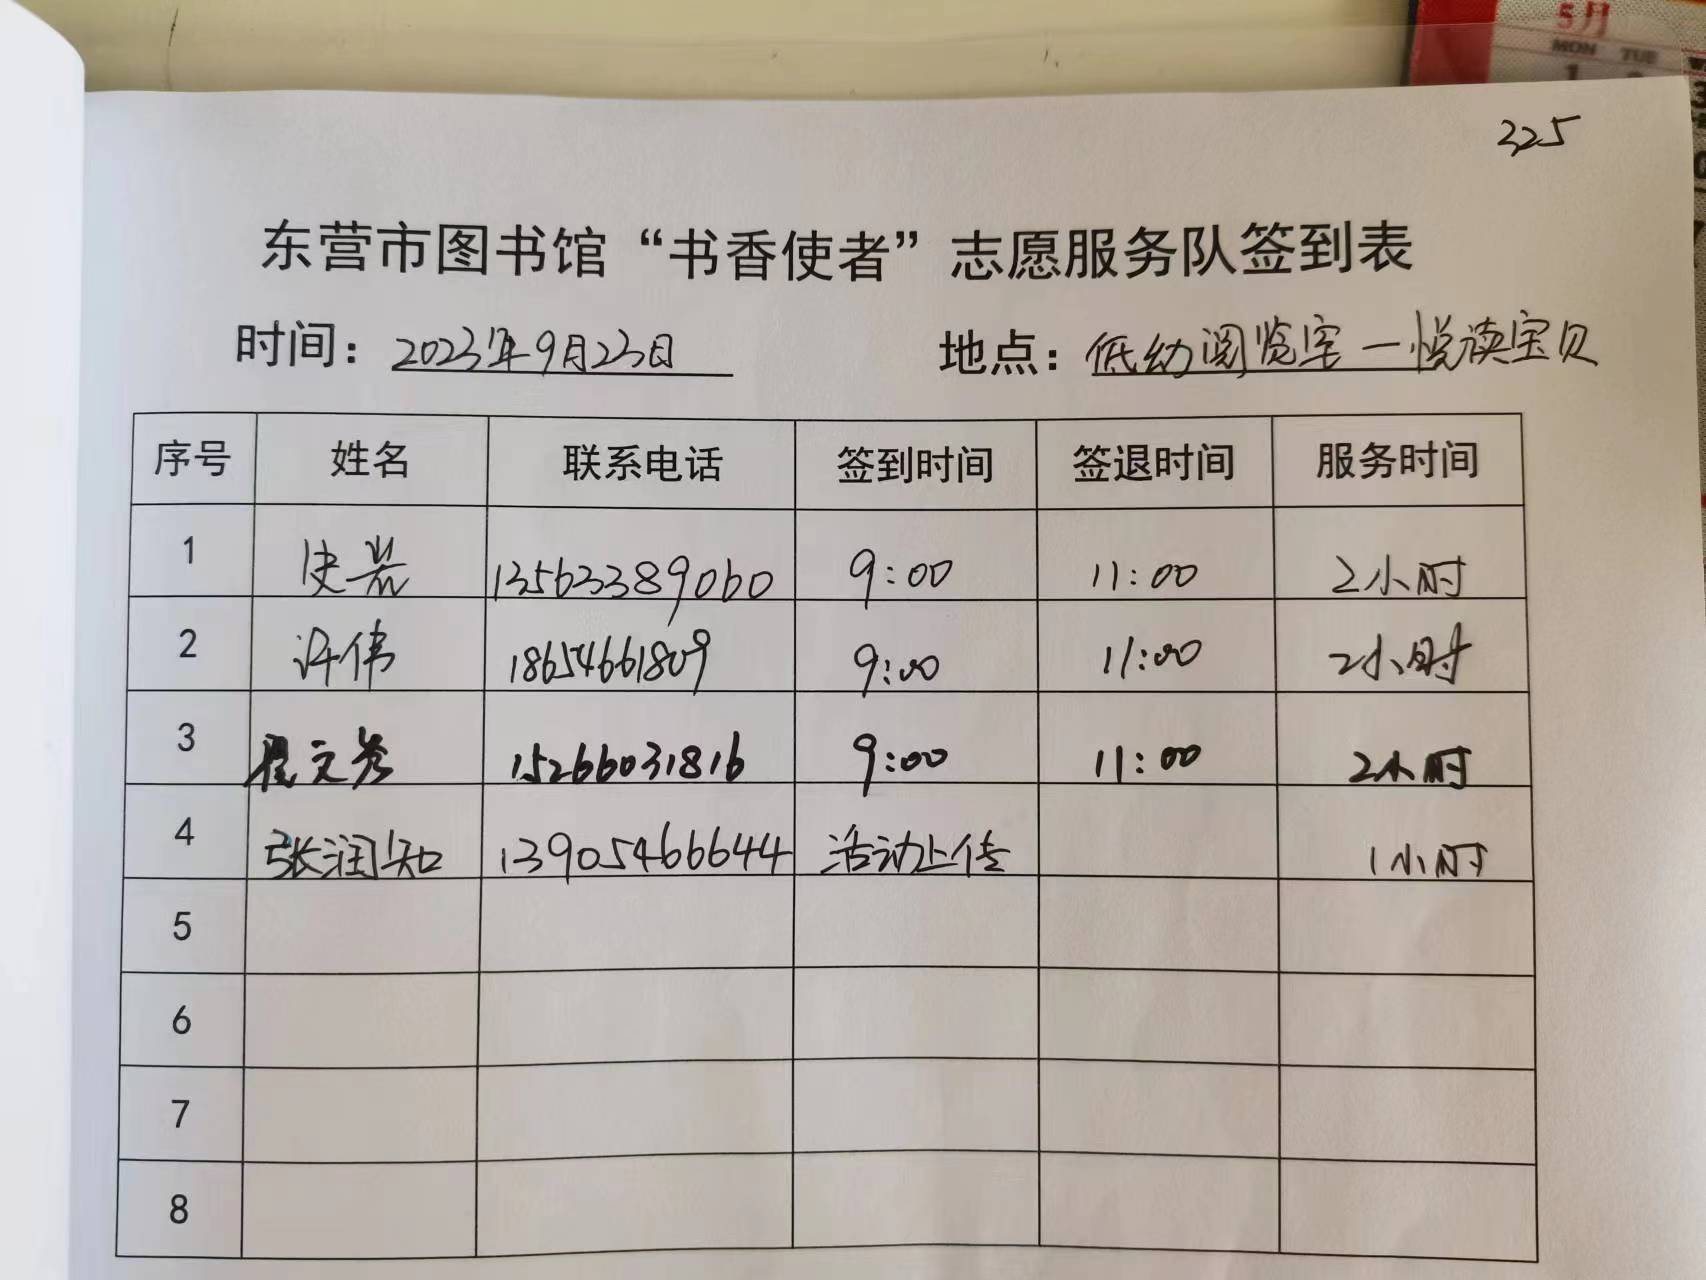 5月
MON TUE
1
225
东营市图书馆“书香使者”志愿服务队签到表
时间：2023年9月23日 地点：低幼阅览室—悦读宝贝
序号 姓名 联系电话 签到时间 签退时间 服务时间
1 13563389060 9:00 11:00 2小时
2 许伟 18654661809 9:00 11:00 2小时
3 15266031816 9:00 11:00 2小时
4 张润知 13905466644 活动上传 1小时
5
6
7
8